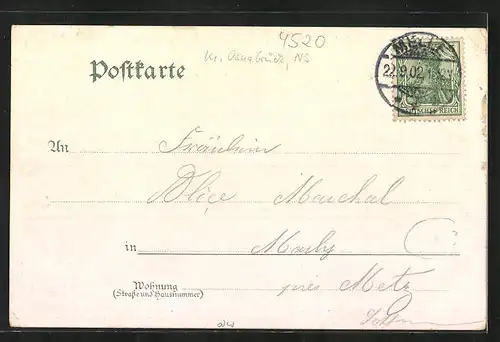 4520
Kr. Osnabrück, NS
MELLE
22.9.02
DEUTSCHES REICH
Postkarte
An Fräulein
Alice Marchal
in Marly
près Metz
Wohnung
(Straße und Hausnummer)